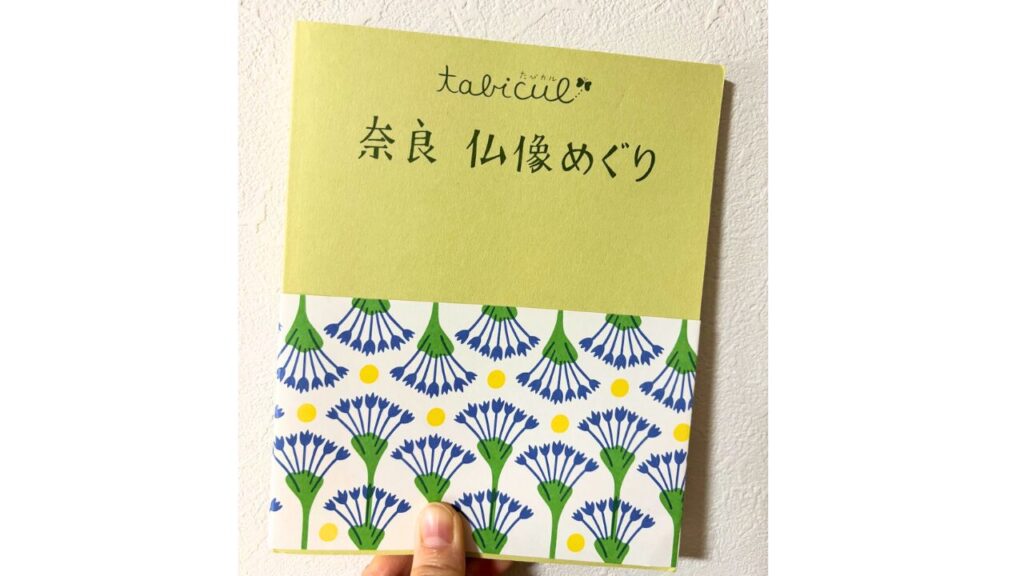 たびカル
tabicul
奈良 仏像めぐり